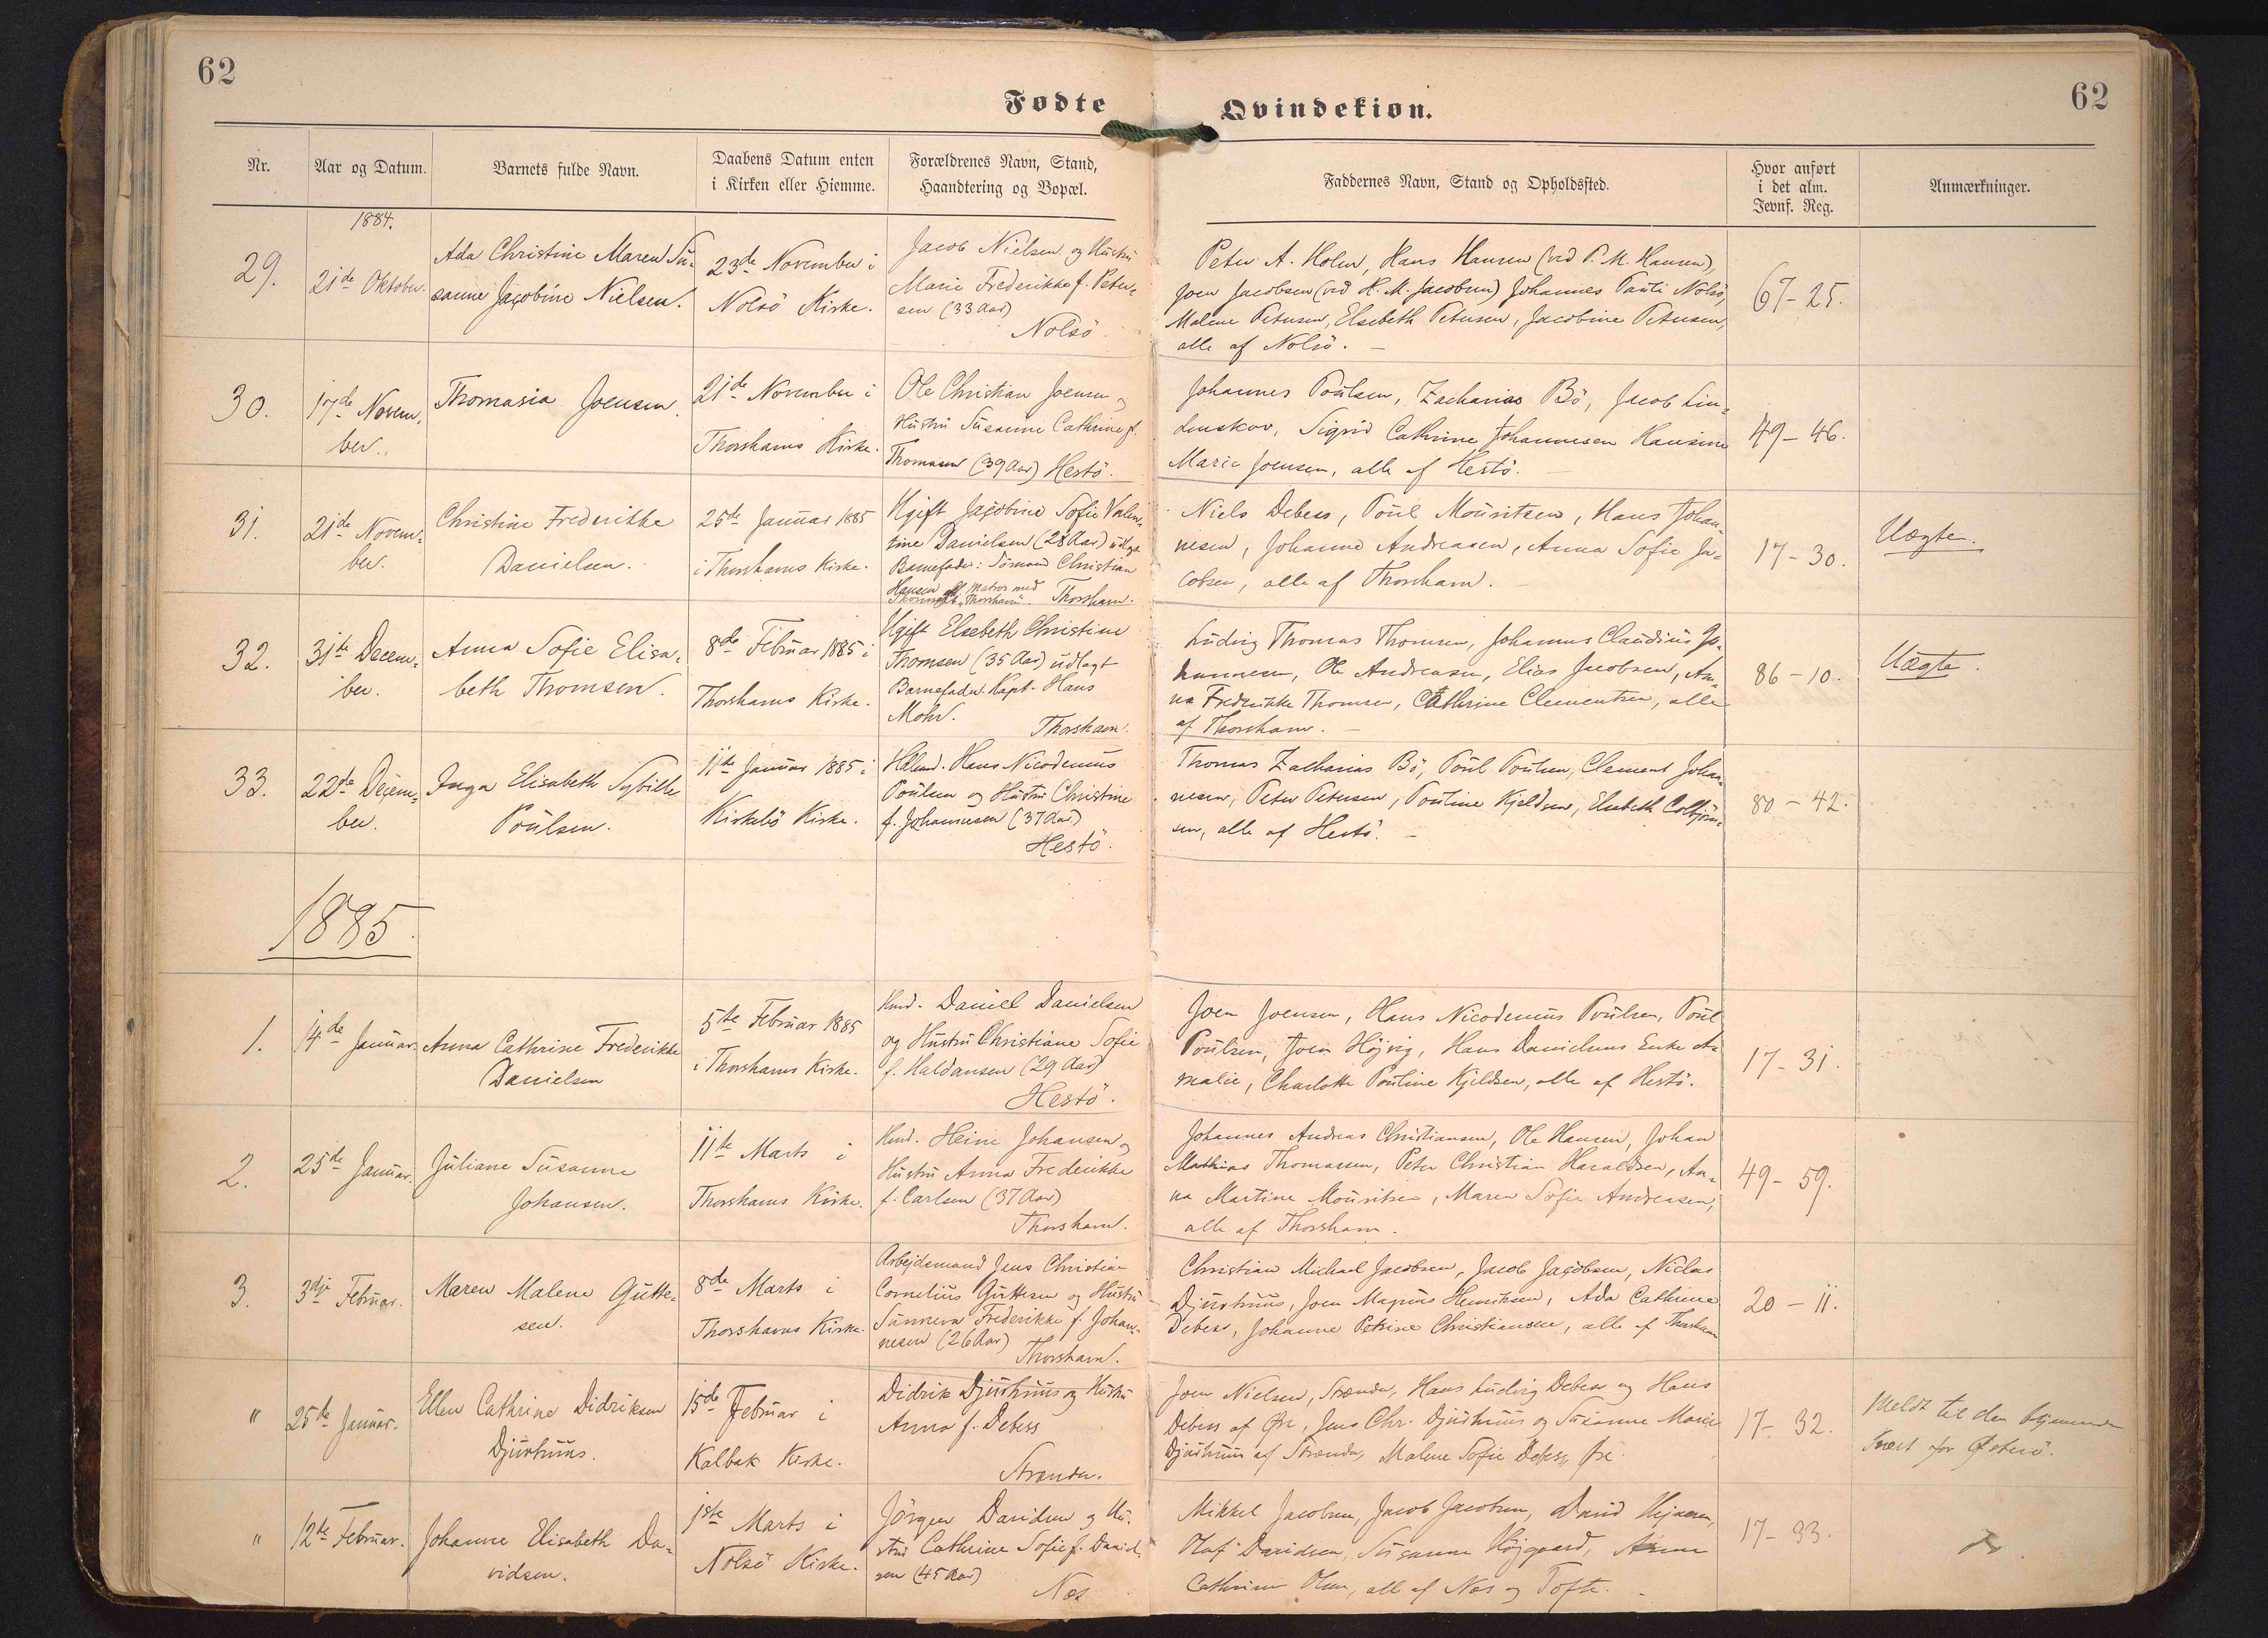 62
62
Fødte
Qvindekiøn.
Nr.
Aar og Datum.
Barnets fulde Navn.
Daabens Datum enten
i Kirken eller Hiemme.
Forældrenes Navn, Stand,
Haandtering og Bopæl.
Faddernes Navn, Stand og Opholdssted.
Hvor anført
i det alm.
Jevnf. Reg.
Anmærkninger.
1884.
29.
21de Oktober.
Ada Christine Maren Su-
sanne Jacobine Nielsen.
23de November i
Nolsö Kirke.
Jacob Nielsen og Hustru
Marie Frederikke f. Peter-
sen (33 Aar)
Nolsö.
Peter A. Holm, Hans Hansen (ved P. M. Hansen),
Joen Jacobsen (ved H. M. Jacobsen) Johannes Pauli Nolsö,
Malene Petersen, Elsebeth Petersen, Jacobine Petersen,
alle af Nolsö.
67-25.
30.
17de Novem-
ber.
Thomasia Joensen.
21de November i
Thorshavns Kirke.
Ole Christian Joensen og
Hustru Susanne Cathrine f.
Thomsen (39 Aar) Hestö.
Johannes Poulsen, Zacharias Bö, Jacob Lin-
denskov, Sigrid Cathrine Johannesen Hansine
Marie Joensen, alle af Hestö.
49-46.
31.
21de Novem-
ber.
Christine Frederikke
Danielsen.
25de Januar 1885
i Thorshavns Kirke.
Ugift Jacobine Sofie Valen-
tine Danielsen (28 Aar) udlagt
Barnefader: Sömand Christian
Hansen Matros med
Thorshavn.
Niels Debess, Poul Mouritsen, Hans Johan-
nesen, Johanne Andreasen, Anna Sofie Ja-
cobsen, alle af Thorshavn.
17-30.
Uægte.
32.
31te Decem-
ber.
Anna Sofie Elisa-
beth Thomsen.
8de Februar 1885 i
Thorshavns Kirke.
Ugift Elsebeth Christine
Thomsen (35 Aar) udlagt
Barnefader Kapt. Hans
Mohr.
Thorshavn.
Ludvig Thomas Thomsen, Johannes Claudius Jo-
hannesen, Ole Andreasen, Elias Jacobsen, An-
na Frederikke Thomsen, Cathrine Clementsen, alle
af Thorshavn.
86-10.
Uægte.
33.
22de Decem-
ber.
Inga Elisabeth Sybille
Poulsen.
11te Januar 1885 i
Kirkebö Kirke.
Hans Nicodemus
Poulsen og Hustru Christine
f. Johannesen (37 Aar)
Hestö.
Thomas Zacharias Bö, Poul Poulsen, Clement Johan-
nesen, Peter Petersen, Pouline Kjeldsen, Elsebeth Colbjörn-
sen, alle af Hestö.
80-42.
1885.
1.
14de Januar.
Anna Cathrine Frederikke
Danielsen
5te Februar 1885
i Thorshavns Kirke.
Hmd. Daniel Danielsen
og Hustru Christiane Sofie
f. Haldansen (29 Aar)
Hestö.
Joen Joensen, Hans Nicodemus Poulsen, Poul
Poulsen, Joen Höjvig, Hans Danielsens Enke A-
malie, Charlotte Pouline Kjeldsen, alle af Hestö.
17-31.
2.
25de Januar.
Juliane Susanne
Johansen.
11te Marts i
Thorshavns Kirke.
Hmd. Heine Johansen og
Hustru Anna Frederikke
f. Carlsen (37 Aar)
Thorshavn.
Johannes Andreas Christiansen, Ole Hansen, Johan
Mathias Thomassen, Peter Christian Haraldsen, An-
na Martine Mouritsen, Maren Sofie Andreasen,
alle af Thorshavn.
49-59.
3.
3dje Februar.
Maren Malene Gutte-
sen.
8de Marts i
Thorshavns Kirke.
Arbejdsmand Jens Christian
Cornelius Guttesen og Hustru
Sunneva Frederikke f. Johan-
nesen (26 Aar)
Thorshavn.
Christian Michael Jacobsen, Jacob Jacobsen, Niclas
Djurhuus, Joen Magnus Henriksen, Ada Cathrine
Debess, Johanne Petrine Christiansen, alle af Thorshavn
20-11.
"
25de Januar.
Ellen Cathrine Didriksen
Djurhuus.
15de Februar i
Kalbak Kirke.
Didrik Djurhuus og Hustru
Anna f. Debess
Strender.
Joen Nielsen, Strender, Hans Ludvig Debess og Hans
Debess af Öre, Jens Chr. Djurhuus og Susanne Marie
Djurhuus af Strender, Malene Sofie Debess, Öre
17-32.
Meldt til den
Præst for Österö.
"
12te Februar.
Johanne Elisabeth Da-
vidsen.
1ste Marts i
Nolsö Kirke.
Jörgen Davidsen og Hu-
stru Cathrine Sofie f. Daniel-
sen (45 Aar)
Næs
Mikkel Jacobsen, Jacob Jacobsen, David
Olaf Davidsen, Susanne Höjgaard, Anne
Cathrine Olsen, alle af Næs og Tofte.
17-33.